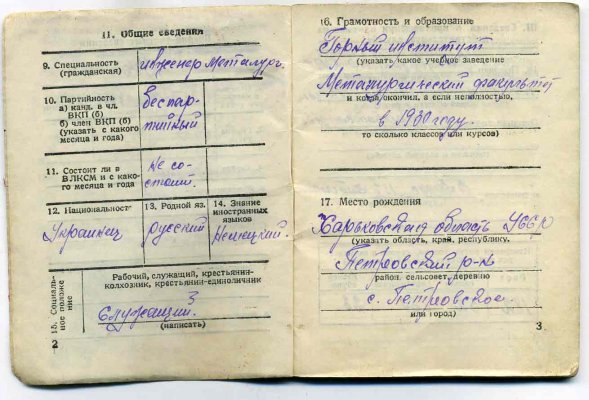 11. Общие сведения
9. Специальность
(гражданская)
инженер металург.
10. Партийность
а) канд. в чл.
ВКП (б)
б) член ВКП (б)
(указать с какого
месяца и года
беспар-
тийный
11. Состоит ли в
ВЛКСМ и с како-
го месяца и года
Не со-
стоит.
12. Национальност
Украинец
13. Родной яз.
русский
14. Знание
иностранных
языков
Немецкий.
15. Социаль-
ное положе
ние
Рабочий, служащий, крестьянин-
колхозник, крестьянин-единоличник
3
Служащий.
(написать)
2
16. Грамотность и образование
Горный институт
(указать какое учебное заведение
Металургический факультет
и когда окончил, а если неполностью,
в 1930 году.
то сколько классов или курсов)
17. Место рождения
Харьковская область УССР
(указать область, край, республику,
Петровский р-н
район, сельсовет, деревню
с. Петровское.
или город)
3